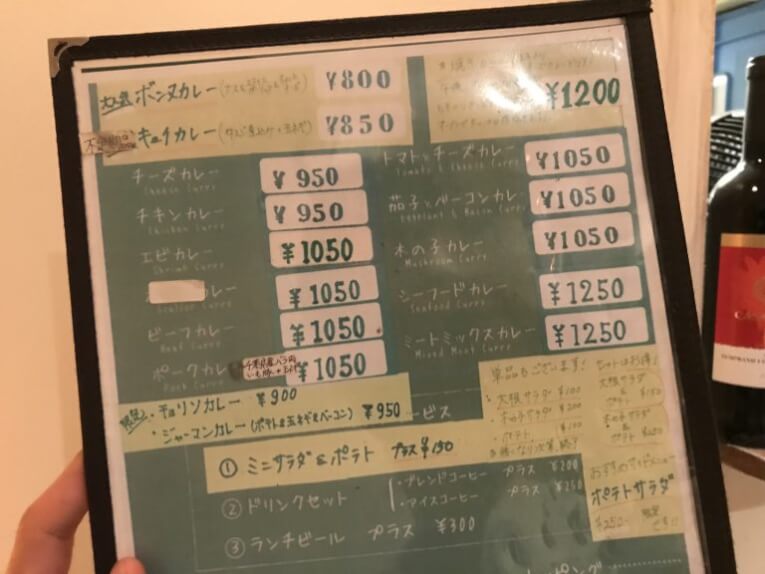 ボンヌカレー ¥800
¥1200
キーマカレー ¥850
チーズカレー ¥950
Cheese Curry
チキンカレー ¥950
Chicken Curry
エビカレー ¥1050
Shrimp Curry
カレー ¥1050
Scallop Curry
ビーフカレー ¥1050
Beef Curry
ポークカレー ¥1050
Pork Curry
トマトとチーズカレー ¥1050
Tomato & Cheese Curry
茄子とベーコンカレー ¥1050
Eggplant & Bacon Curry
木の子カレー ¥1050
Mushroom Curry
シーフードカレー ¥1250
Seafood Curry
ミートミックスカレー ¥1250
Mixed Meat Curry
・チョリソカレー ¥900
・ジャーマンカレー(ポテト&玉ネギ&ベーコン) ¥950
ービス
① ミニサラダ&ポテト プラス¥150
② ドリンクセット
・ブレンドコーヒー プラス ¥200
・アイスコーヒー プラス ¥250
③ ランチビール プラス ¥300
単品もございます!
・大根サラダ ¥100
・木の子サラダ ¥200
・ポテト ¥100
セットはお得!
大根サラダ
&
ポテト ¥150
木の子サラダ
&
ポテト
おすすめサイドメニュー
ポテトサラダ
¥250-